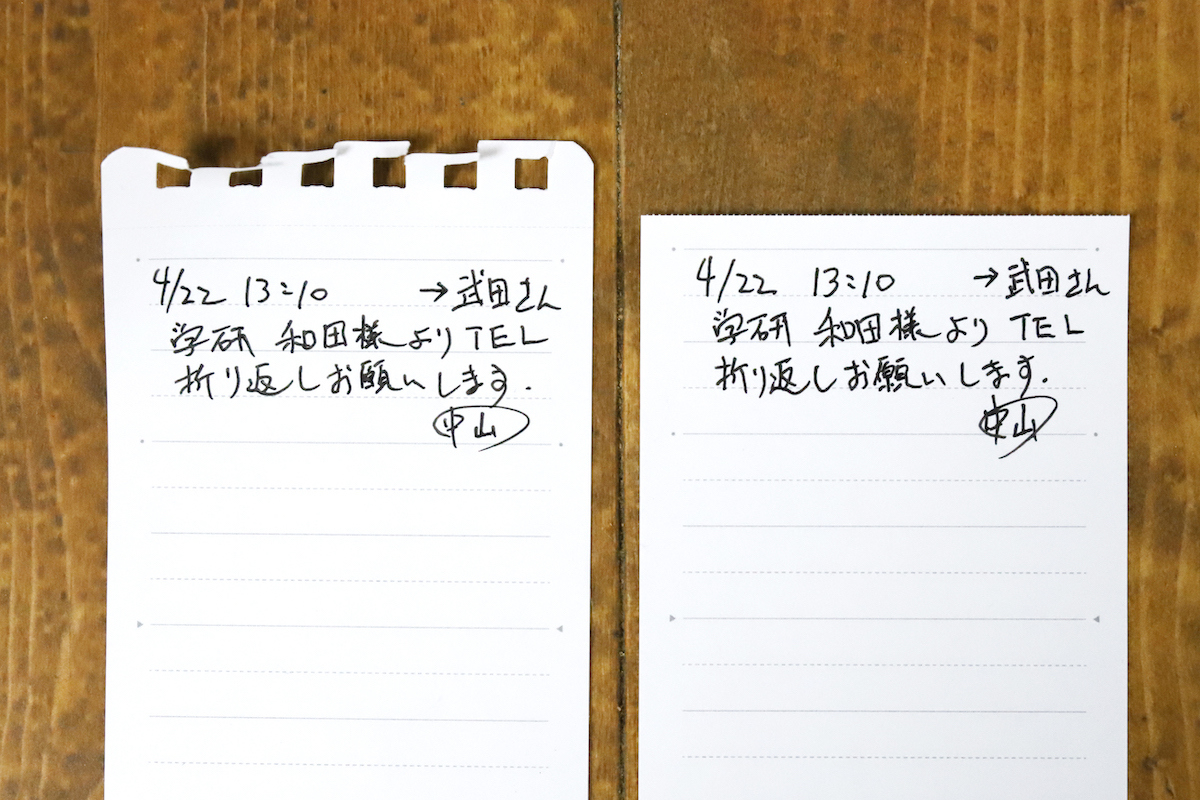 4/22 13:10 →武田さん
学研 和田様よりTEL
折り返しお願いします.
中山
4/22 13:10 →武田さん
学研 和田様よりTEL
折り返しお願いします.
中山